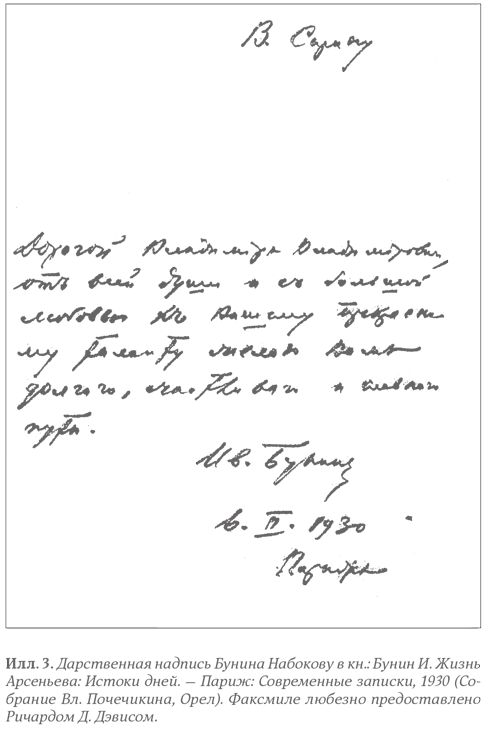 В. Сирину
Дорогой Владимiръ Владимiровичъ,
отъ всей души и съ большой
любовью къ Вашему прекрасно
му таланту желаю Вамъ
долгаго, счастливаго и славнаго
пути.
Ив. Бунинъ
6. II. 1930
Парижъ
Илл. 3. Дарственная надпись Бунина Набокову в кн.: Бунин И. Жизнь
Арсеньева: Истоки дней. — Париж: Современные записки, 1930 (Со-
брание Вл. Почечикина, Орел). Факсмиле любезно предоставлено
Ричардом Д. Дэвисом.